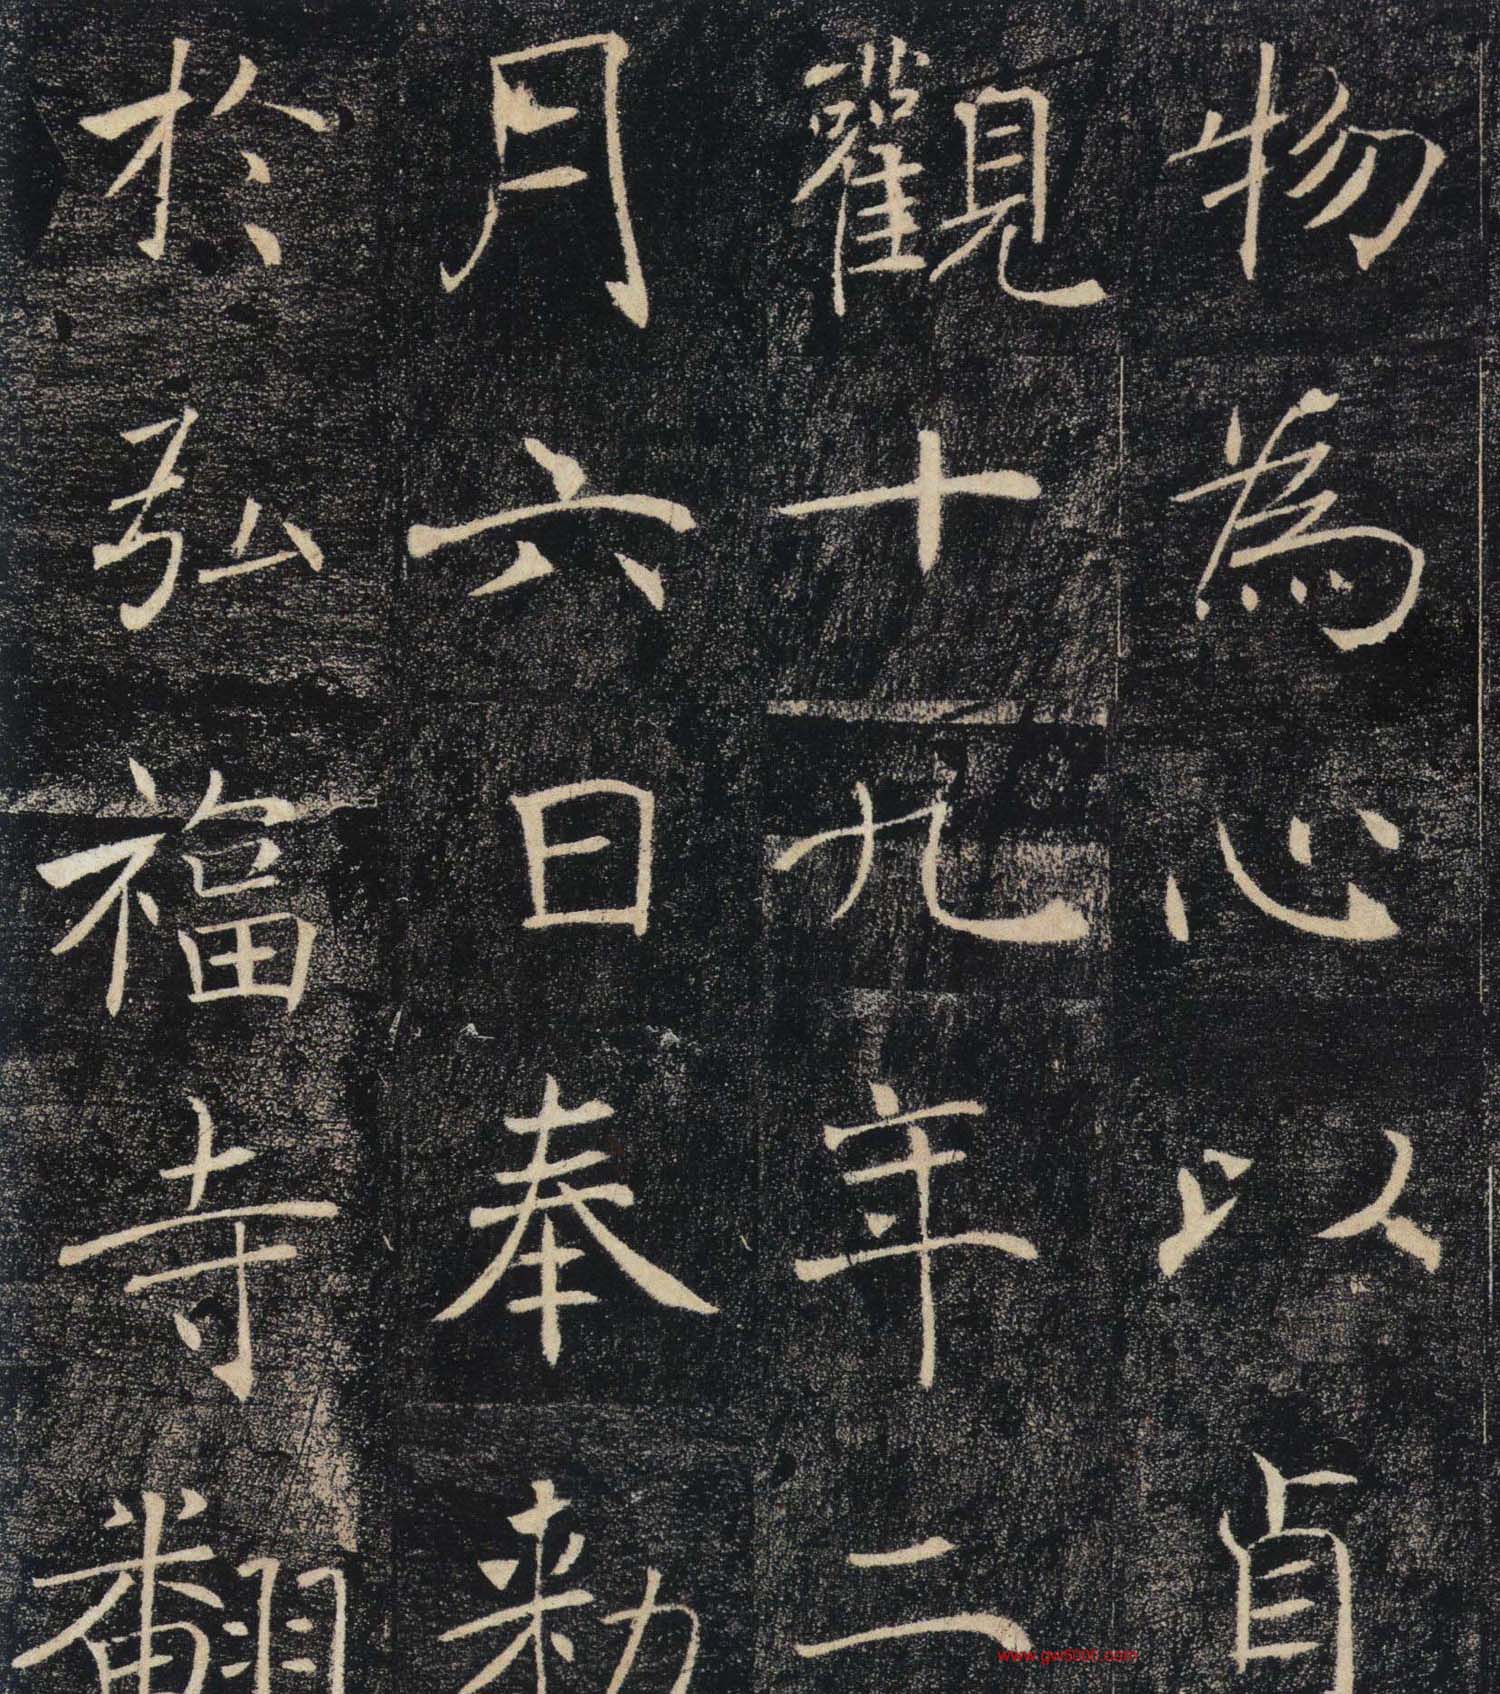 物為心以貞
觀十九年二
月六日奉勅
於弘福寺翻
www.gw5000.com